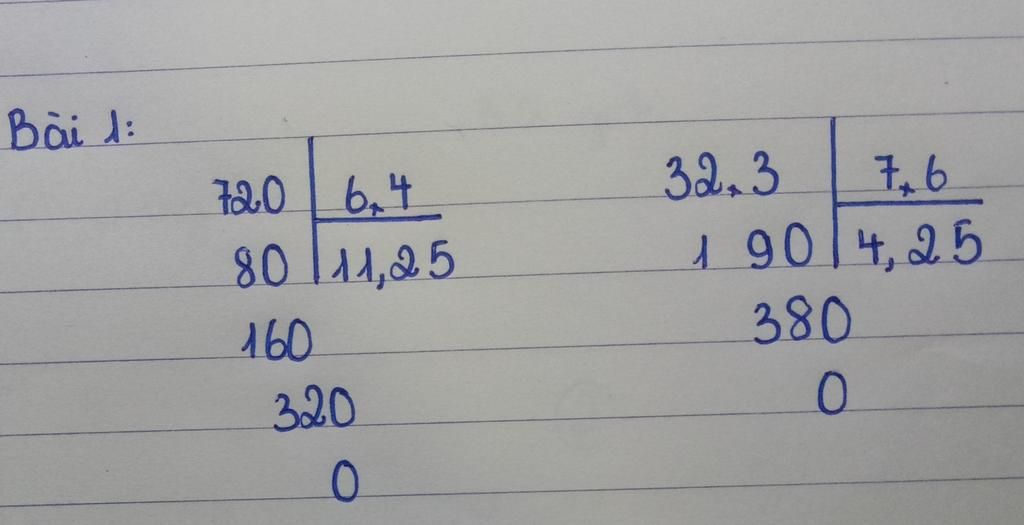 Bài 1:
720 6,4
80 11,25
160
320
0
32,3 7,6
1 90 4,25
380
0